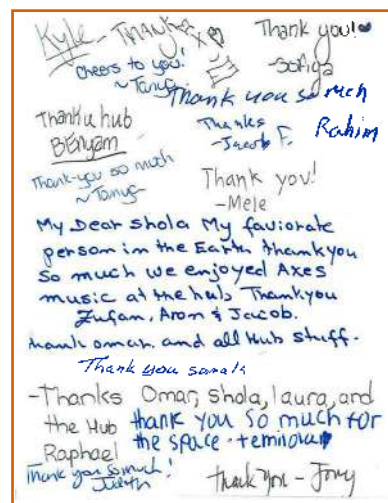 Kyle - Thanks
Thank you!
-Sofiya
Cheers to you!
~Tanya
Thank you so much
Rahim
Thank u hub
BENyam
Thanks
-Jacob F.
Thank-you so much
~Tanya
Thank you!
-Mele
My Dear Shola My faviorate
person in the Earth thankyou
so much we enjoyed Axes
music at the hub, Thankyou
Zufan, Aron & Jacob.
thank omar, and all Hub stuff.
Thank you sarah
-Thanks Omar, Shola, laura, and
the Hub
Raphael
thank you so much for
the space - teminour
Thank you so much!
Judith
thank you - Jony